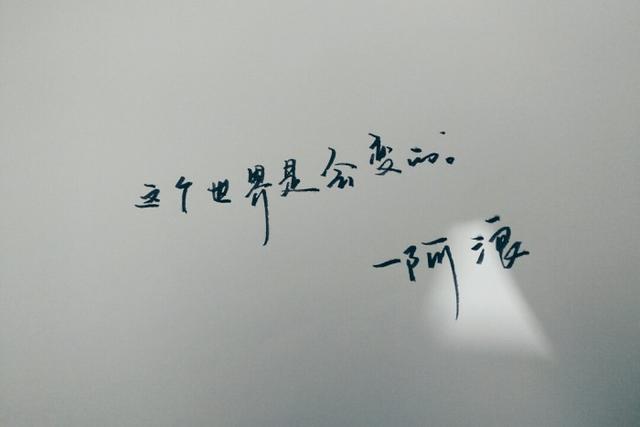 这个世界是会变的。
—阿浪